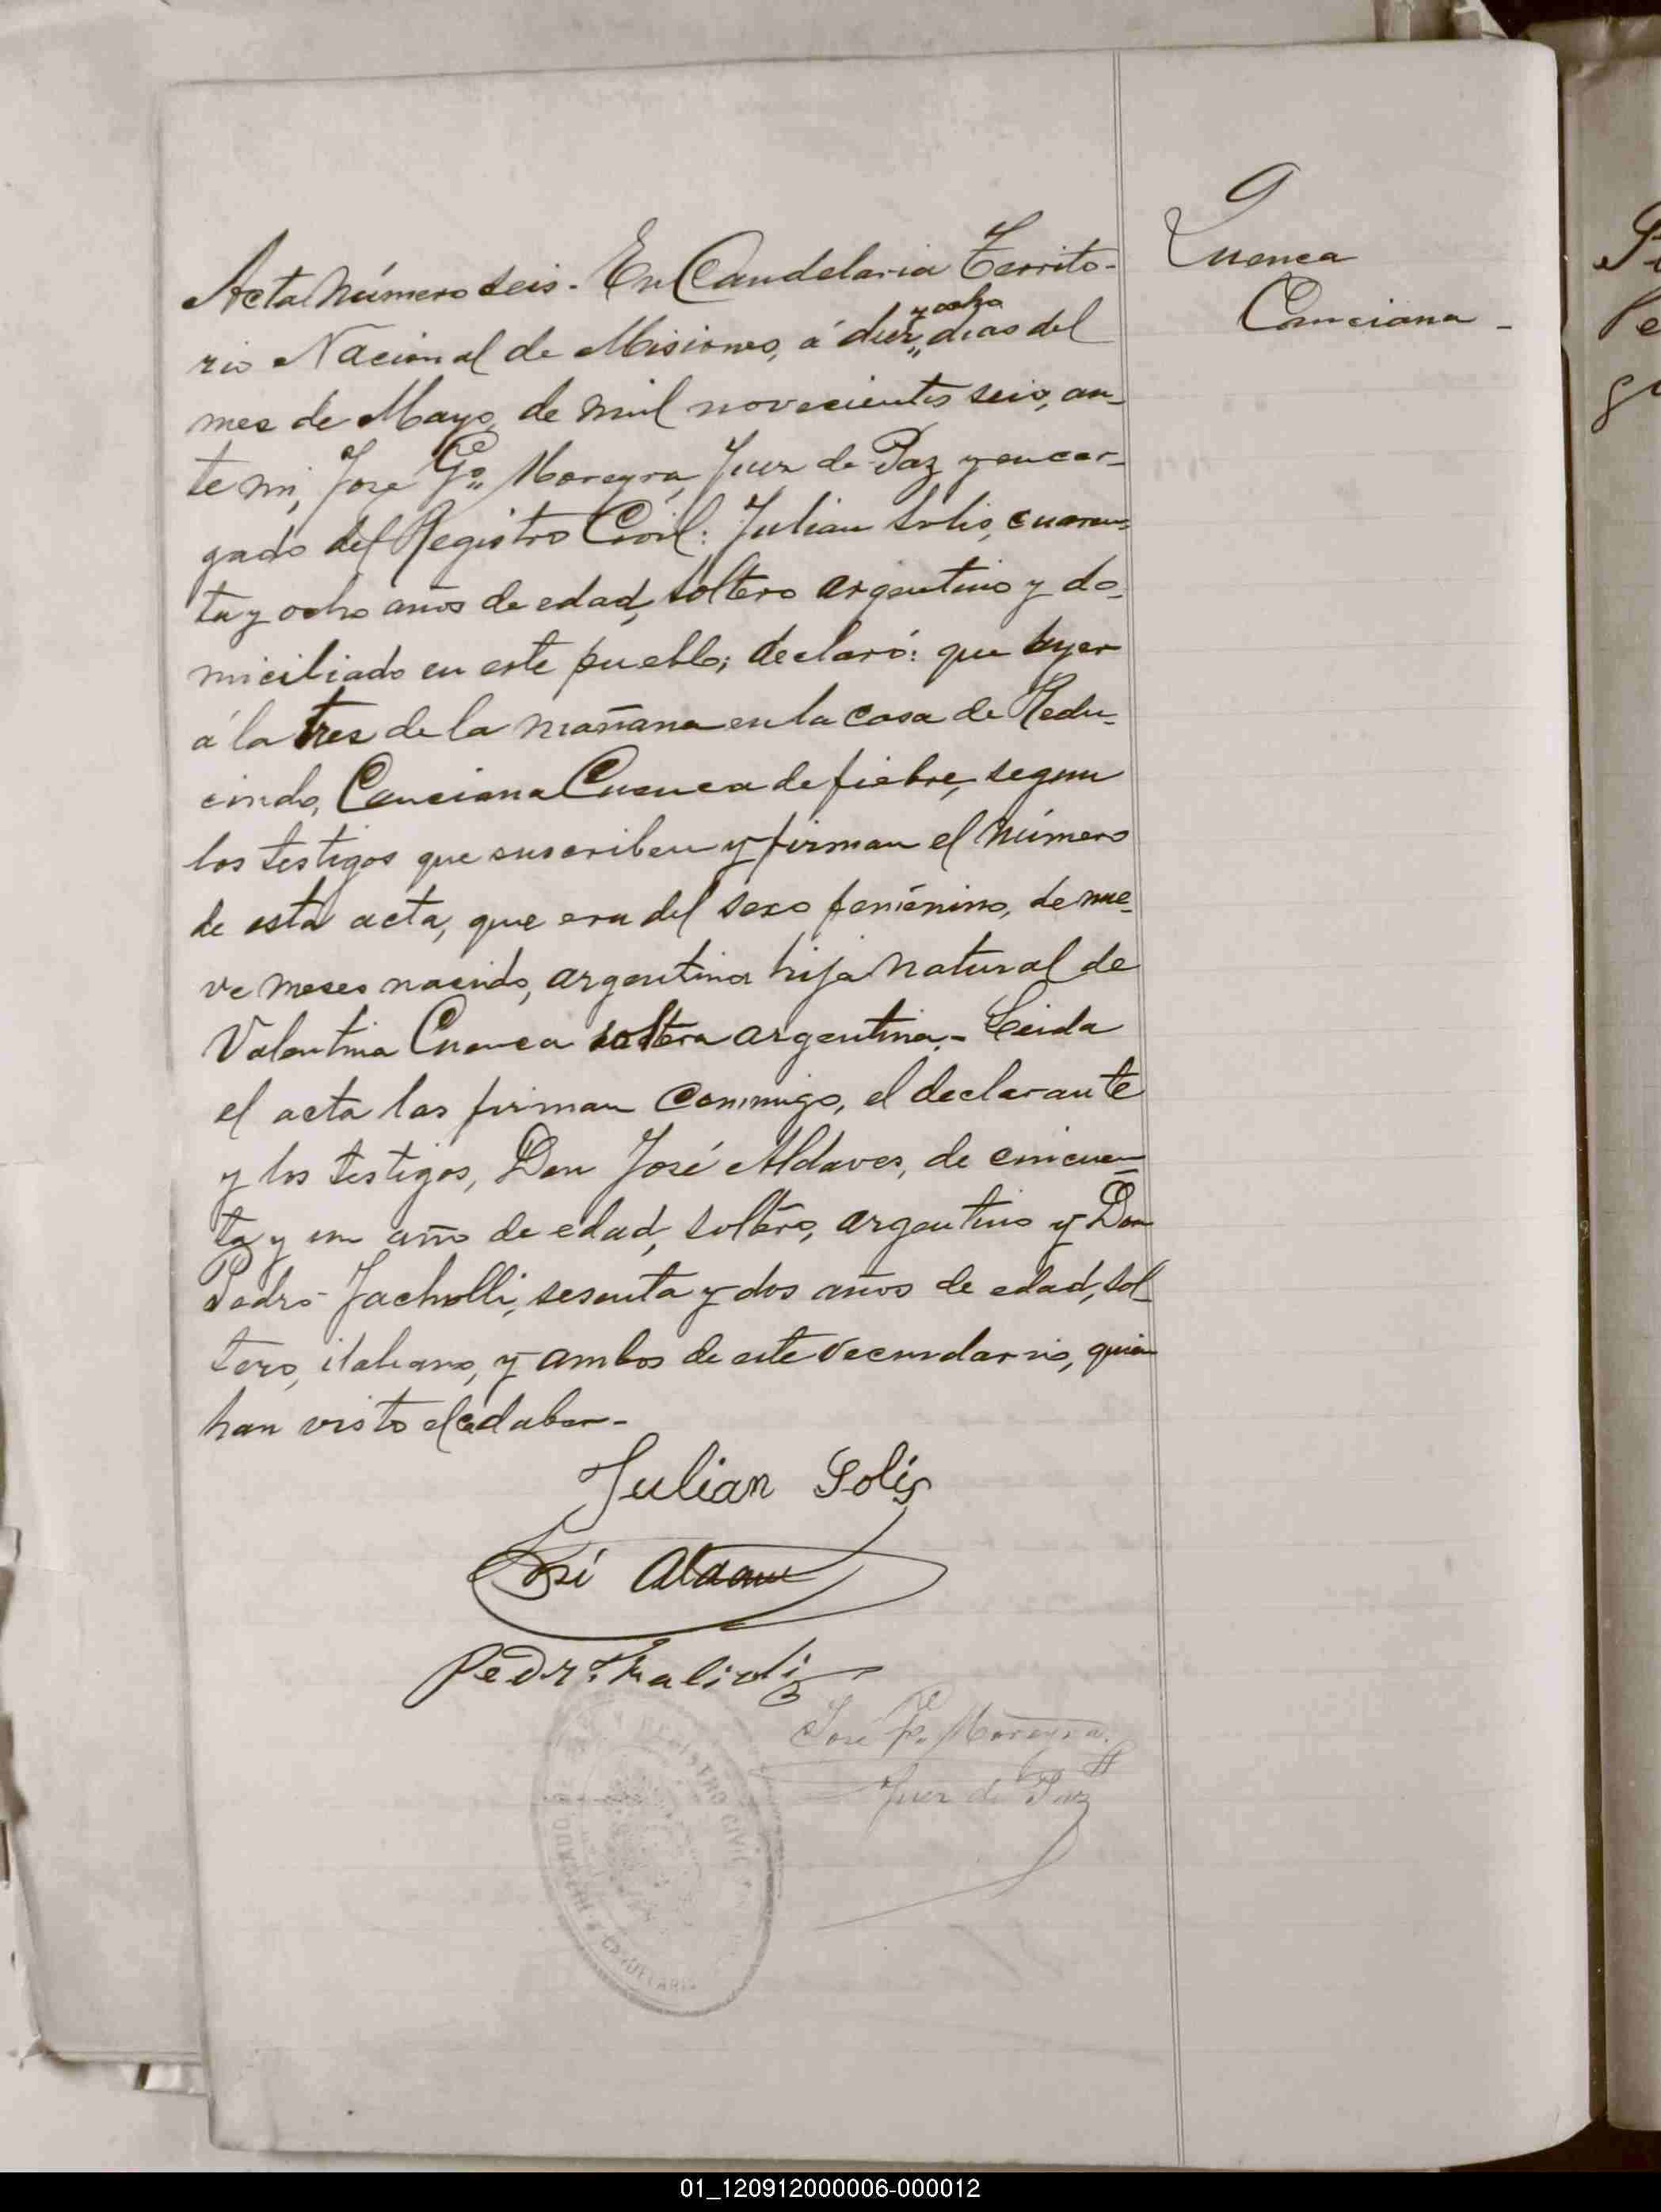 Acta Número seis. En Candelaria Territo-
rio Nacional de Misiones, á diez y ocho dias del
mes de Mayo, de mil novecientos seis, an-
te mi, José Go. Moreyra, Juez de Paz y encar-
gado del Registro Civil: Julian Solis, cuaren-
ta y ocho años de edad, soltero argentino y do-
miciliado en este pueblo; declaró: que ayer
á la tres de la mañana en la casa de Redu-
cindo, Canciana Cuenca de fiebre, segun
los testigos que suscriben y firman el número
de esta acta, que era del sexo femenino, de nue-
ve meses nacido, argentina hija natural de
Valentina Cuenca soltera argentina.- Leida
el acta las firman conmigo, el declarante
y los testigos, Don José Aldaves, de cincuen-
ta y un año de edad, soltero, argentino y Don
Pedro Jacholli, sesenta y dos años de edad, sol-
tero, italiano, y ambos de este vecindario, quien
han visto el cadaber-
Julian Solis
José
Pedro
José Moreyra
Juez de Paz
REGISTRO CIVIL
CANDELARIA
Cuenca
Canciana -
01_120912000006-000012